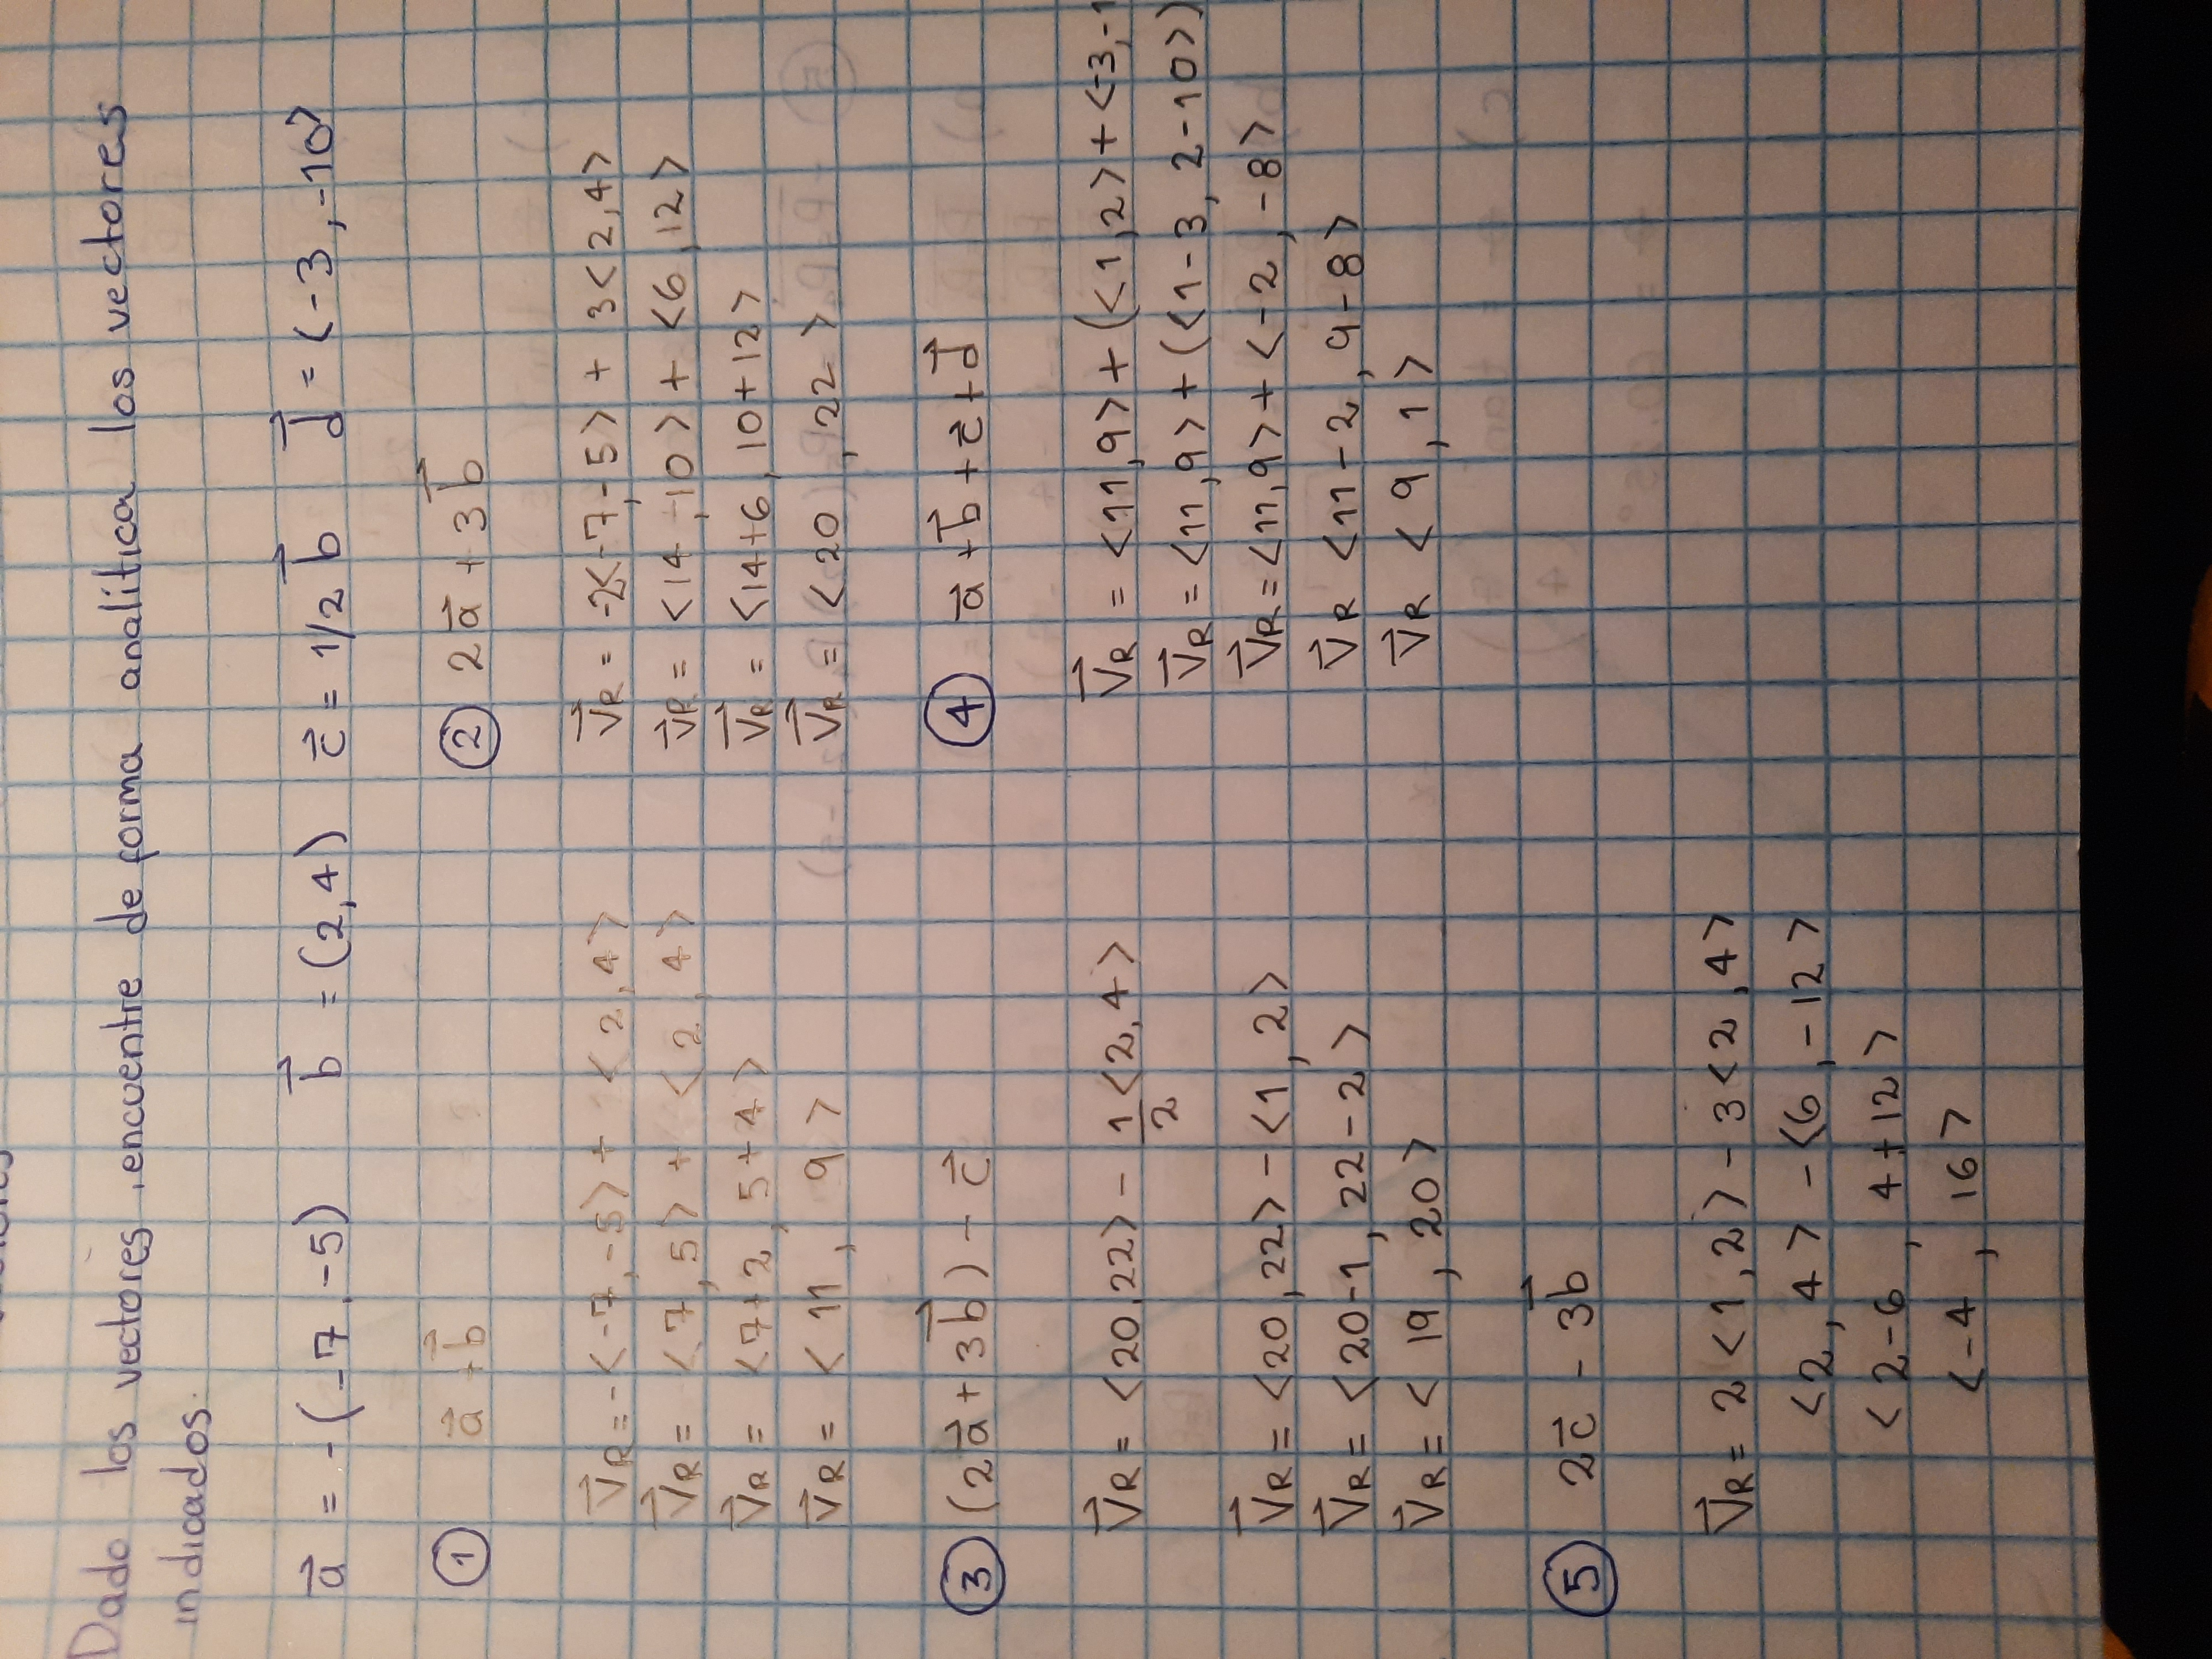 Dado los vectores, encuentre de forma analitica los vectores
indicados.
a⃗ = -(-7,-5) b⃗ = (2,4) c⃗ = 1/2 b⃗ d⃗ = <-3,-10>
① a⃗ + b⃗
V⃗R = -<-7,-5> + <2,4>
V⃗R = <7,5> + <2,4>
V⃗R = <7+2, 5+4>
V⃗R = <11, 9>
② 2a⃗ + 3b⃗
V⃗R = -2<-7,-5> + 3<2,4>
V⃗R = <14,10> + <6,12>
V⃗R = <14+6, 10+12>
V⃗R = <20, 22>
③ (2a⃗ + 3b⃗) - c⃗
V⃗R = <20,22> - 1/2<2,4>
V⃗R = <20,22> - <1,2>
V⃗R = <20-1, 22-2>
V⃗R = <19, 20>
④ a⃗ + b⃗ + c⃗ + d⃗
V⃗R = <11,9> + (<1,2> + <-3,-1
V⃗R = <11,9> + (<1-3, 2-10>)
V⃗R = <11,9> + <-2, -8>
V⃗R <11-2, 9-8>
V⃗R <9,1>
⑤ 2c⃗ - 3b⃗
V⃗R = 2<1,2> - 3<2,4>
<2,4> - <6,-12>
<2-6, 4+12>
<-4, 16>